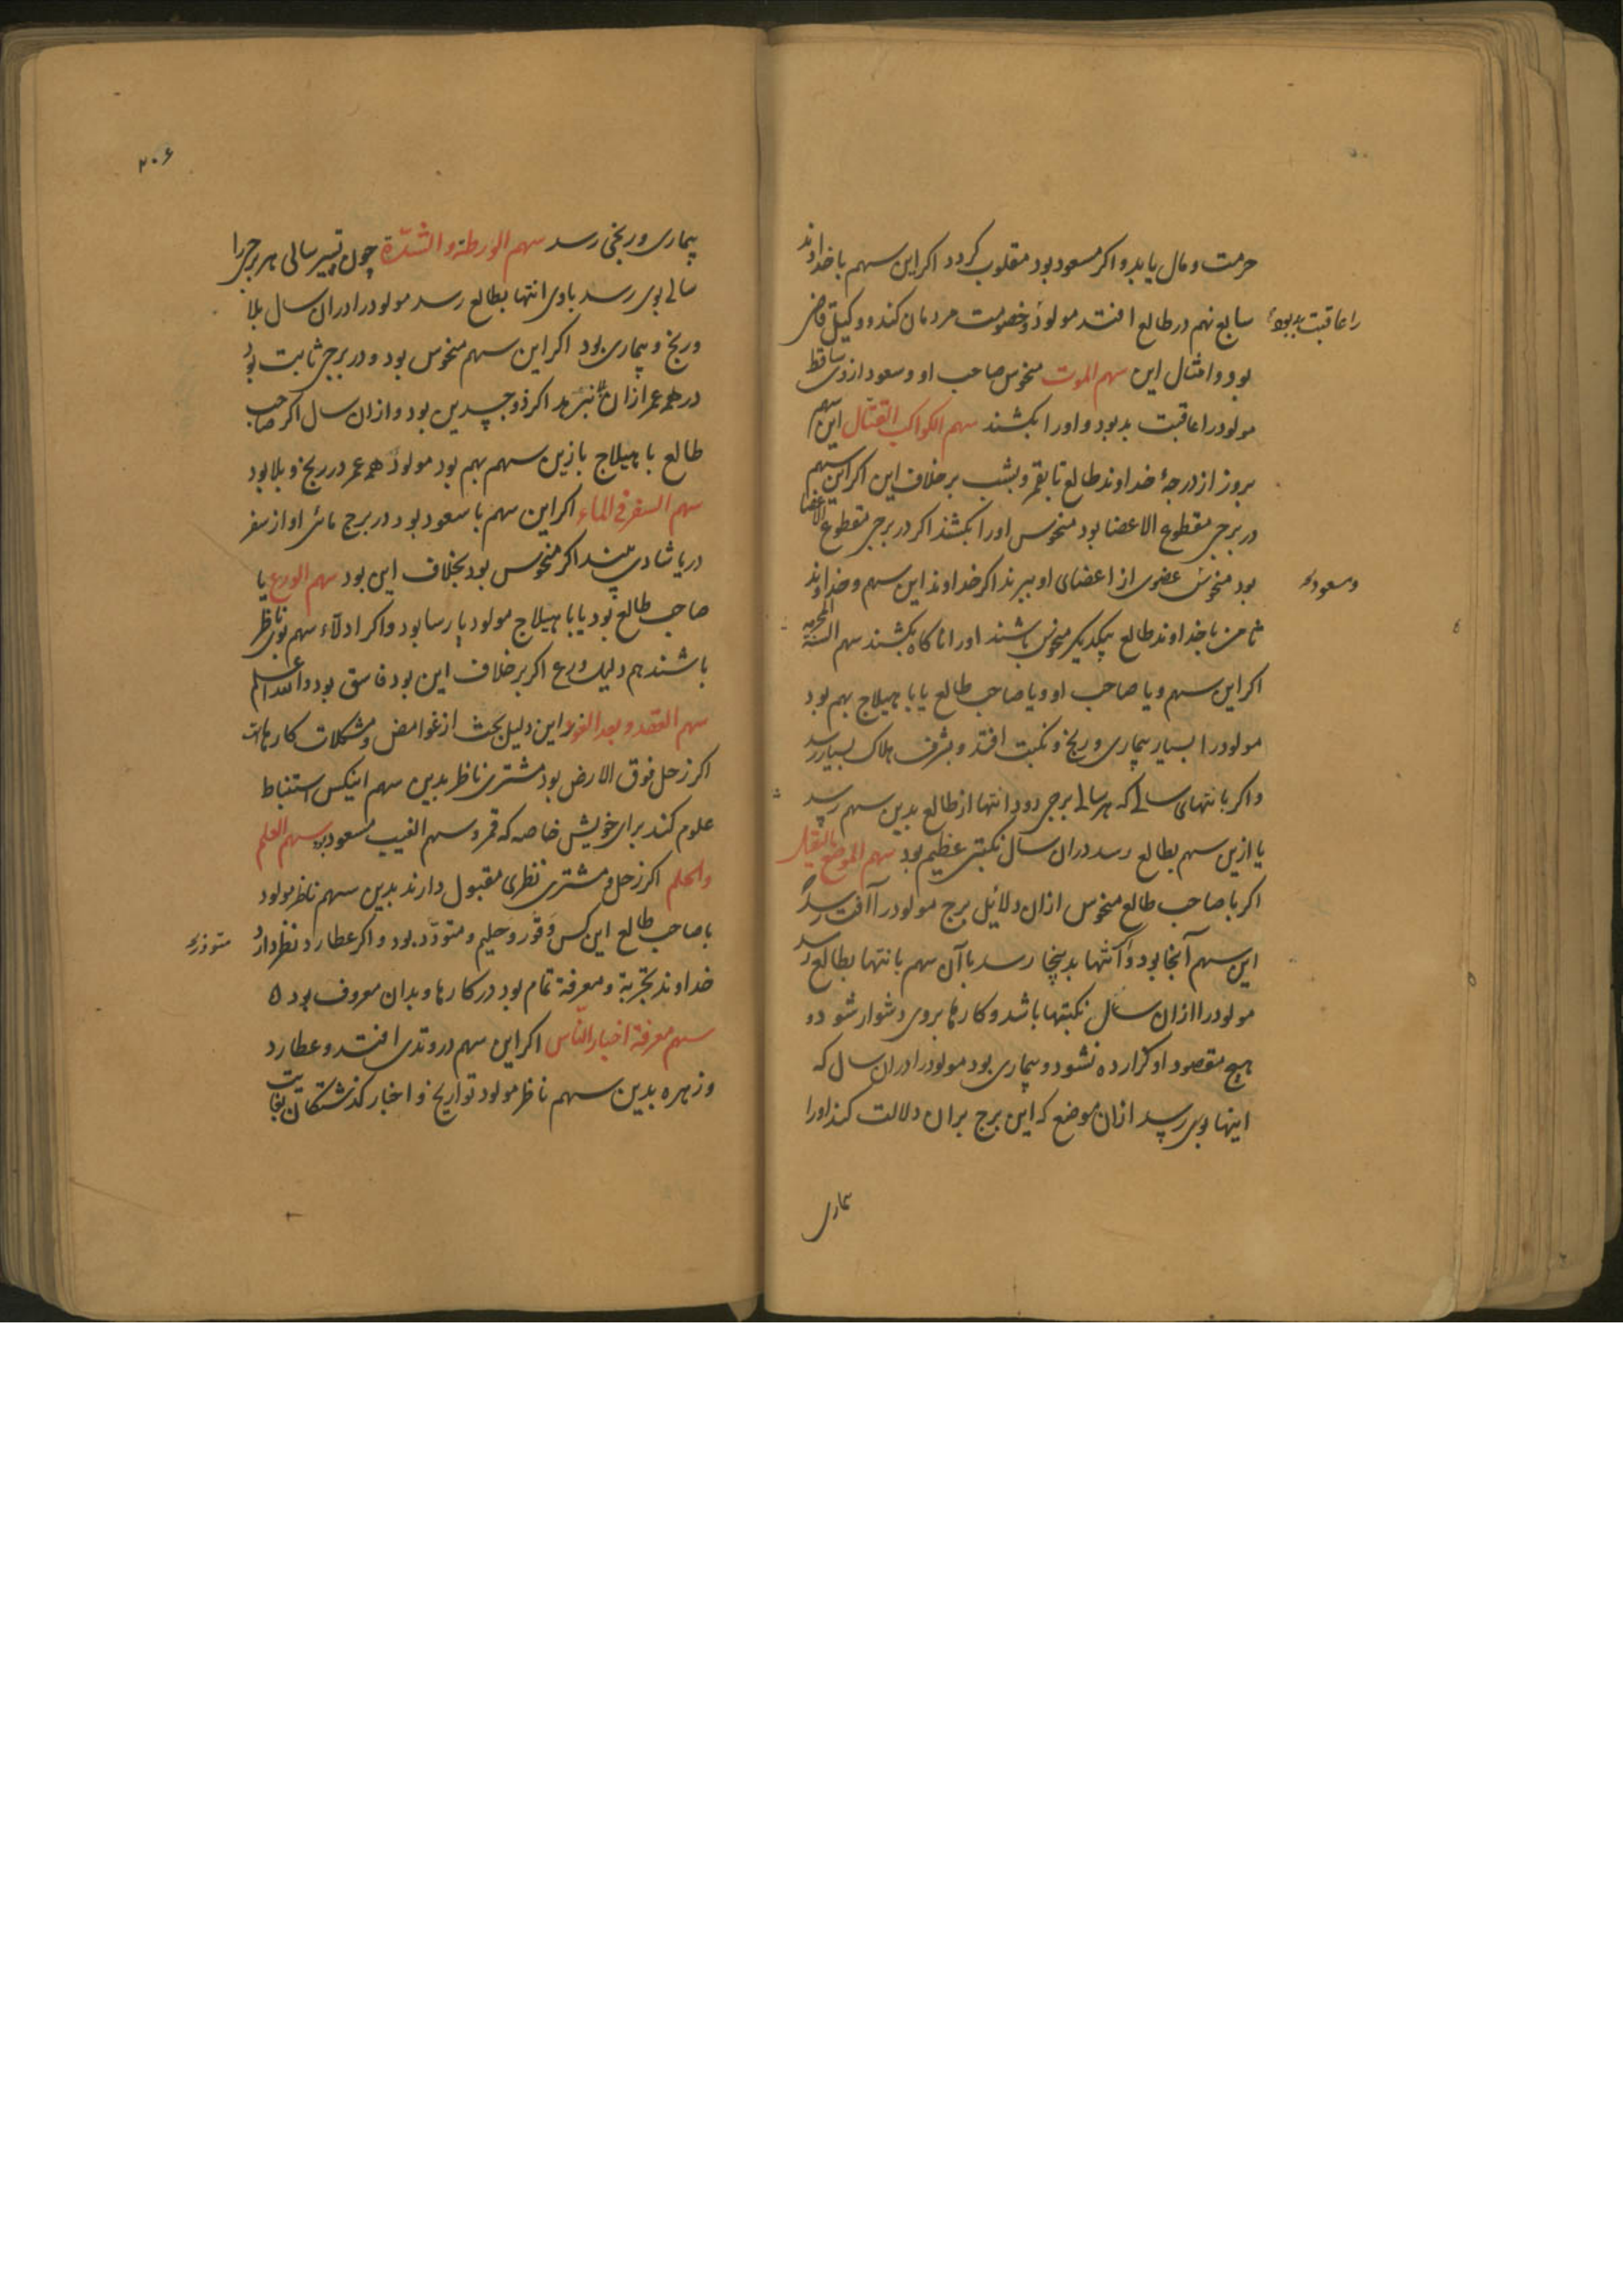 حرمت و مال یابد و اکر مسعود بود مقلوب کردد اکر این سهم با خداوند
سابع بهم در طالع افتد مولود خصومت مردمان کند و وکیل قاضی
را عاقبت بد بود
بود و امثال این سهم الموت منحوس صاحب او و سعود از وی ساقط
مولود را عاقبت بد بود و او را بکشند سهم الکواکب القتال این سهم
بروز از درجهٔ خداوند طالع تا بقمر و بشب بر خلاف این اکر این سهم
در برجی مقطوع الاعضا بود منحوس او را بکشند اکر در برجی مقطوع الاعضا
بود منحوس عضوی از اعضای او ببرند اکر خداوند این سهم و خداوند
و سعود
ثامن با خداوند طالع بیکدیکر منحوس باشند او را ناکاه بکشند سهم السنة
اکر این سهم و یا صاحب او و یا صاحب طالع یا با هیلاج بهم بود
مولود را بسیار بیماری و رنج و نکبت افتد و بشرف هلاک بسیار رسد
و اکر بانتهای سالی که هر سالی برجی رود انتها از طالع بدین سهم رسد
یا ازین سهم بطالع رسد در ان سال نکبتی عظیم بود سهم الموضع الثقیل
اکر با صاحب طالع منحوس از ان دلائل برج مولود را آفت رسد اکر
این سهم آنجا بود و انتها بدینجا رسد با آن سهم بانتها بطالع رسد
مولود را ازان سال نکبتها باشد و کارها بر وی دشوار شود و
هیچ مقصود او کزارده نشود و بیماری بود مولود را در ان سال که
اینها بوی رسد از ان موضع که این برج بر ان دلالت کند او را
بیماری
۲۰۶
بیماری و رنجی رسد سهم الورطة و الشدّة چون تسییر سالی هر برجی را
سالی بوی رسد با وی انتها بطالع رسد مولود را در ان سال بلا
و رنج و بیماری بود اکر این سهم منحوس بود و در برجی ثابت بود
در همه عمر ازان نرهد اکر ذو جسدین بود و ازان سال اکر صاحب
طالع با هیلاج بازین سهم بهم بود مولود همه عمر در رنج و بلا بود
سهم السفر فی الماء اکر این سهم با سعود بود در برج مائی او از سفر
دریا شادی بیند اکر منحوس بود بخلاف این بود سهم الورع با
صاحب طالع بود یا با هیلاج مولود پارسا بود و اکر ادلّاء سهم بوی ناظر
باشند هم دلیل ورع اکر بر خلاف این بود فاسق بود والله اعلم
سهم العقد و بعد الغور این دلیل بحث از غوامض و مشکلات کارهاست
اکر زحل فوق الارض بود مشتری ناظر بدین سهم اینکس استنباط
علوم کند برای خویش خاصه که قمر و سهم الغیب مسعود بود سهم العلم
والحلم اکر زحل و مشتری نظری مقبول دارند بدین سهم ناظر مولود
با صاحب طالع این کس وقور و حلیم و متودّد بود و اکر عطارد نظر دارد
خداوند تجربة و معرفة تمام بود در کارها و بدان معروف بود ٥
سهم معرفة اخبار النّاس اکر این سهم در وتدی افتد و عطارد
و زهره بدین سهم ناظر مولود تواریخ و اخبار کذشتکان بغایت